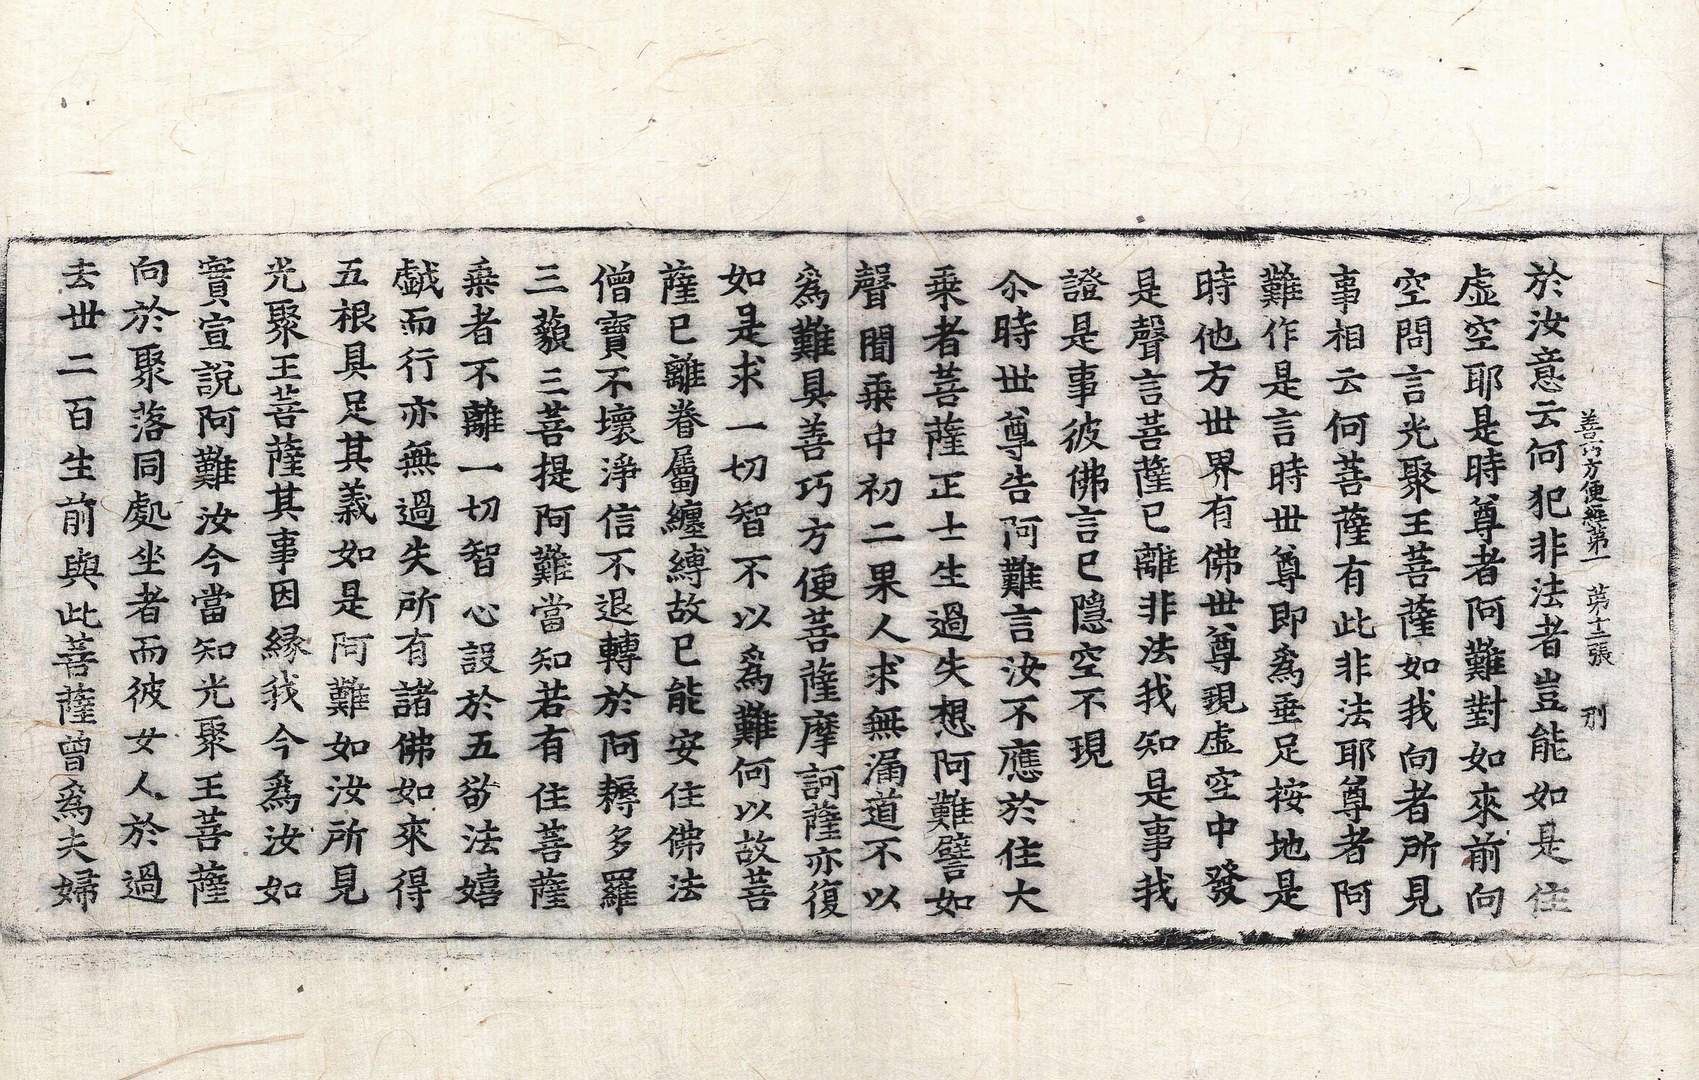 善巧方便經第一　第十二張　刑
於汝意云何犯非法者豈能如是住
虛空耶是時尊者阿難對如來前向
空問言光聚王菩薩如我向者所見
事相云何菩薩有此非法耶尊者阿
難作是言時世尊即為垂足按地是
時他方世界有佛世尊現虛空中發
是聲言菩薩已離非法我知是事我
證是事彼佛言已隱空不現
尒時世尊告阿難言汝不應於住大
乘者菩薩正士生過失想阿難譬如
聲聞乘中初二果人求無漏道不以
為難具善巧方便菩薩摩訶薩亦復
如是求一切智不以為難何以故菩
薩已離眷屬纏縛故已能安住佛法
僧寶不壞淨信不退轉於阿耨多羅
三藐三菩提阿難當知若有住菩薩
乘者不離一切智心設於五欲法嬉
戲而行亦無過失所有諸佛如來得
五根具足其義如是阿難如汝所見
光聚王菩薩其事因緣我今為汝如
實宣說阿難汝今當知光聚王菩薩
向於聚落同處坐者而彼女人於過
去世二百生前與此菩薩曾為夫婦